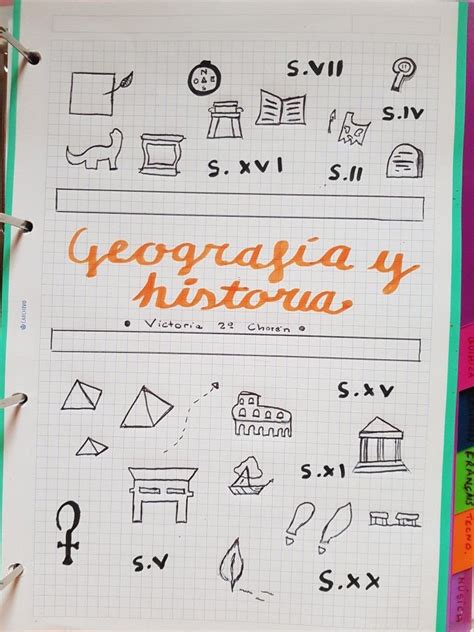 S.VII
S.IV
S.XVI
S.II
Geografía y
historia
Victoria 2º
S.XV
S.XI
S.V
S.XX
FRANÇAIS
TECNO.
MÚSICA